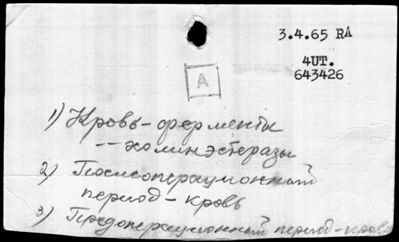 3.4.65 RA
4UT.
643426
A
1) Кровь-ферменты
--холинэстеразы
2) Послеоперационный
период-кровь
3) Предоперационный период-кровь